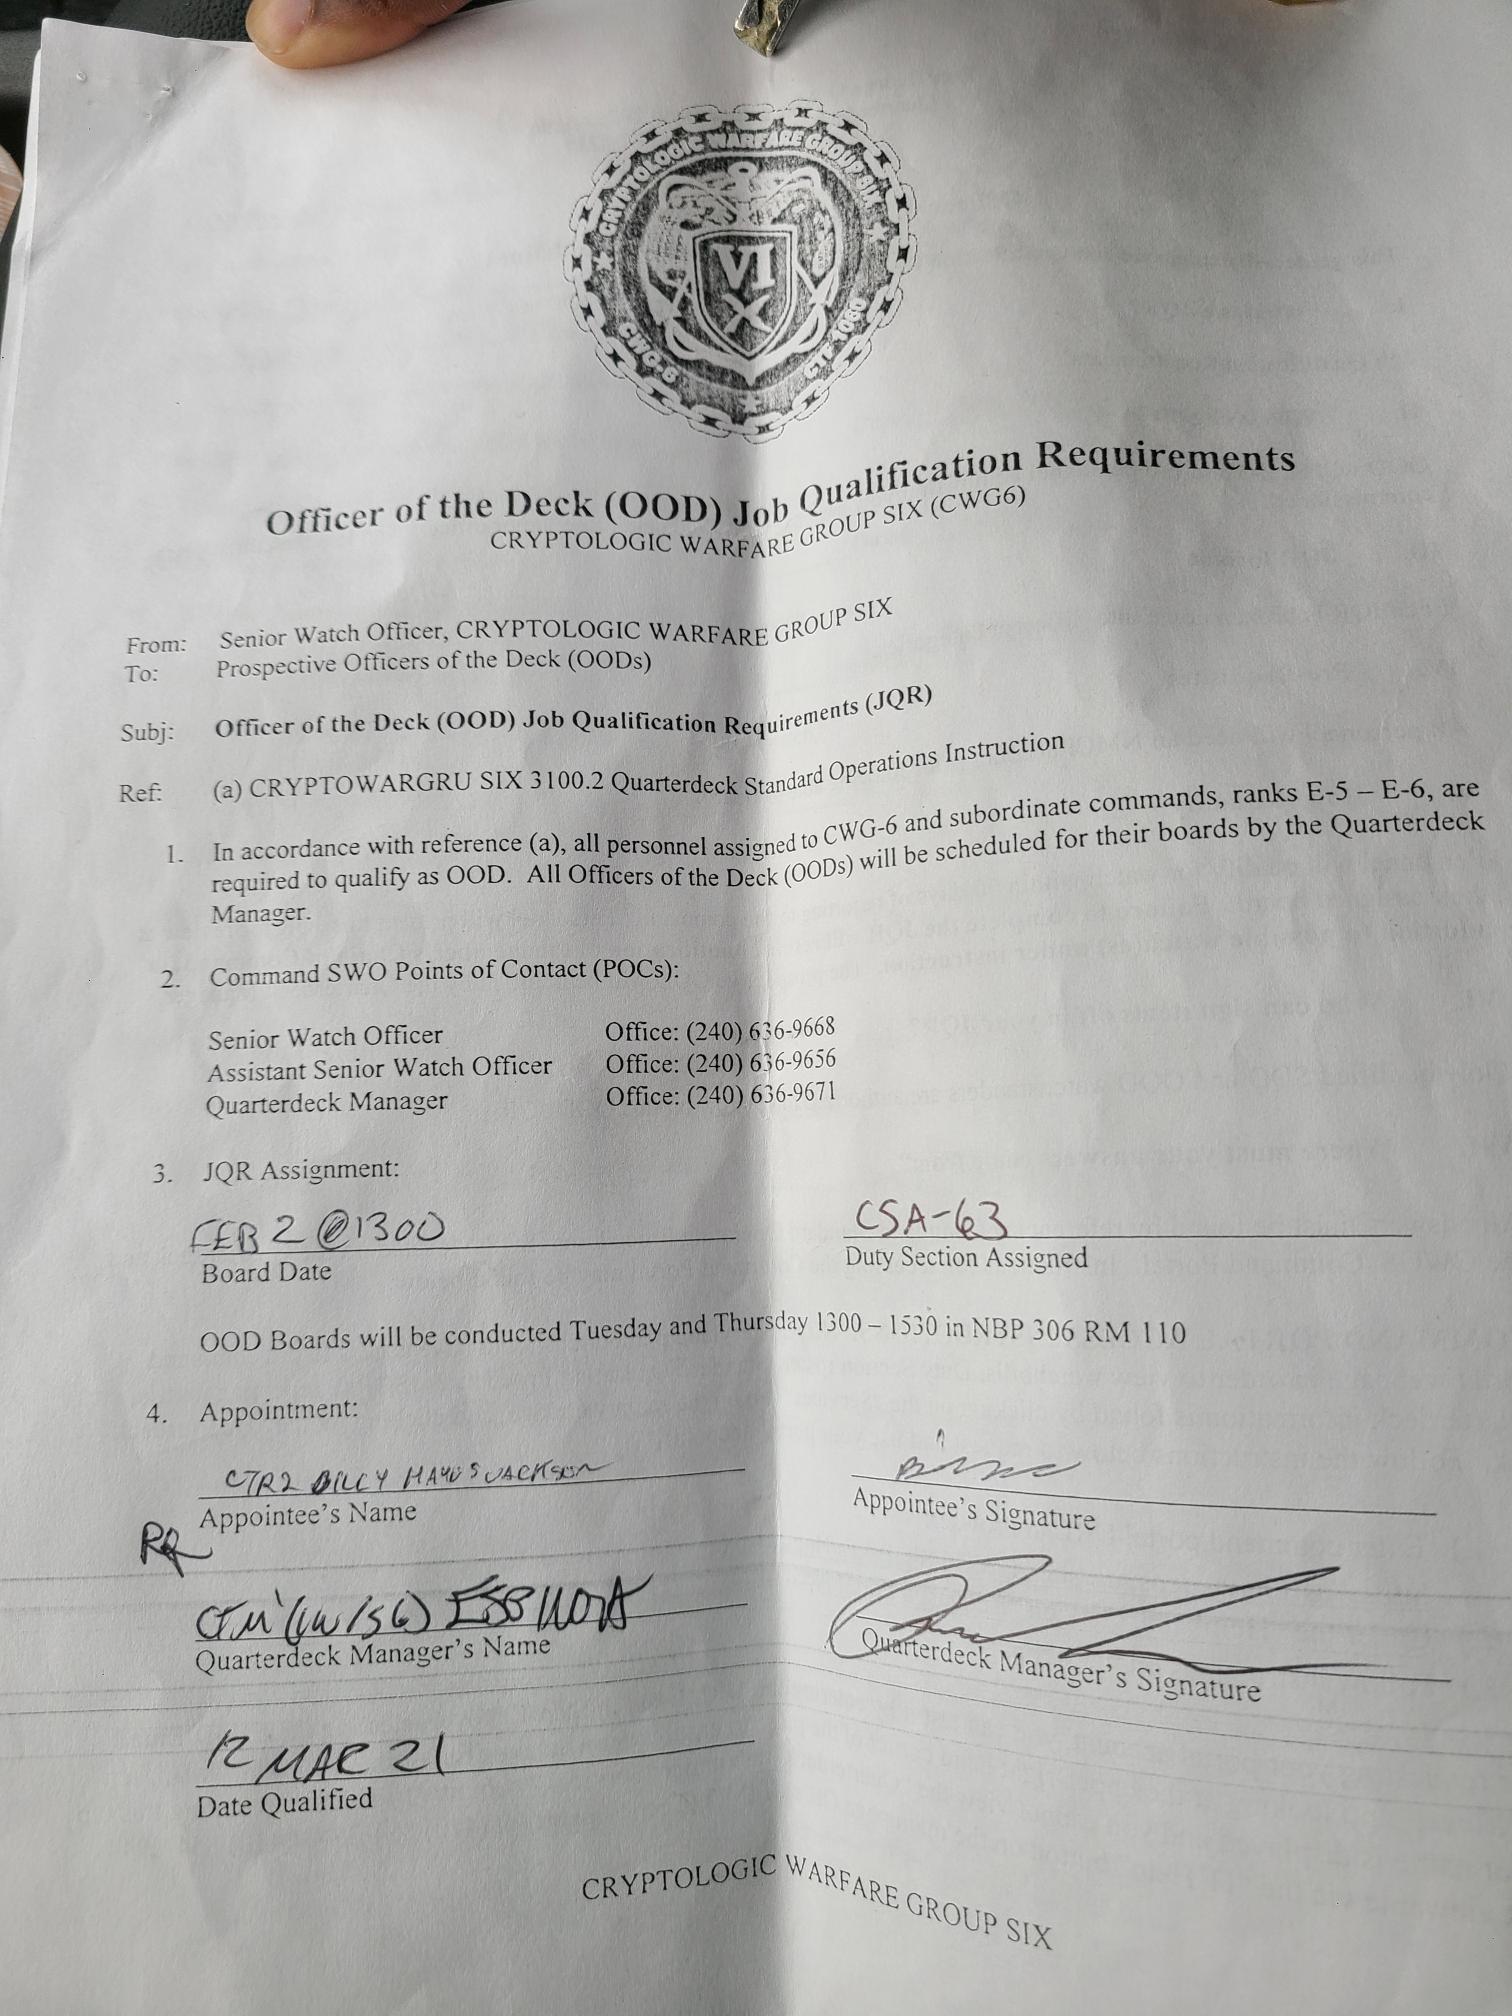 CRYPTOLOGIC WARFARE GROUP SIX
VI
CWG-6
CTF 1060
Officer of the Deck (OOD) Job Qualification Requirements
CRYPTOLOGIC WARFARE GROUP SIX (CWG6)
From: Senior Watch Officer, CRYPTOLOGIC WARFARE GROUP SIX
To: Prospective Officers of the Deck (OODs)
Subj: Officer of the Deck (OOD) Job Qualification Requirements (JQR)
Ref: (a) CRYPTOWARGRU SIX 3100.2 Quarterdeck Standard Operations Instruction
1. In accordance with reference (a), all personnel assigned to CWG-6 and subordinate commands, ranks E-5 – E-6, are
required to qualify as OOD. All Officers of the Deck (OODs) will be scheduled for their boards by the Quarterdeck
Manager.
2. Command SWO Points of Contact (POCs):
Senior Watch Officer Office: (240) 636-9668
Assistant Senior Watch Officer Office: (240) 636-9656
Quarterdeck Manager Office: (240) 636-9671
3. JQR Assignment:
FEB 2 @1300 CSA-63
Board Date Duty Section Assigned
OOD Boards will be conducted Tuesday and Thursday 1300 – 1530 in NBP 306 RM 110
4. Appointment:
CTR2 BILLY HAYES JACKSON
Appointee's Name Appointee's Signature
RR
Quarterdeck Manager's Name Quarterdeck Manager's Signature
12 MAR 21
Date Qualified
CRYPTOLOGIC WARFARE GROUP SIX